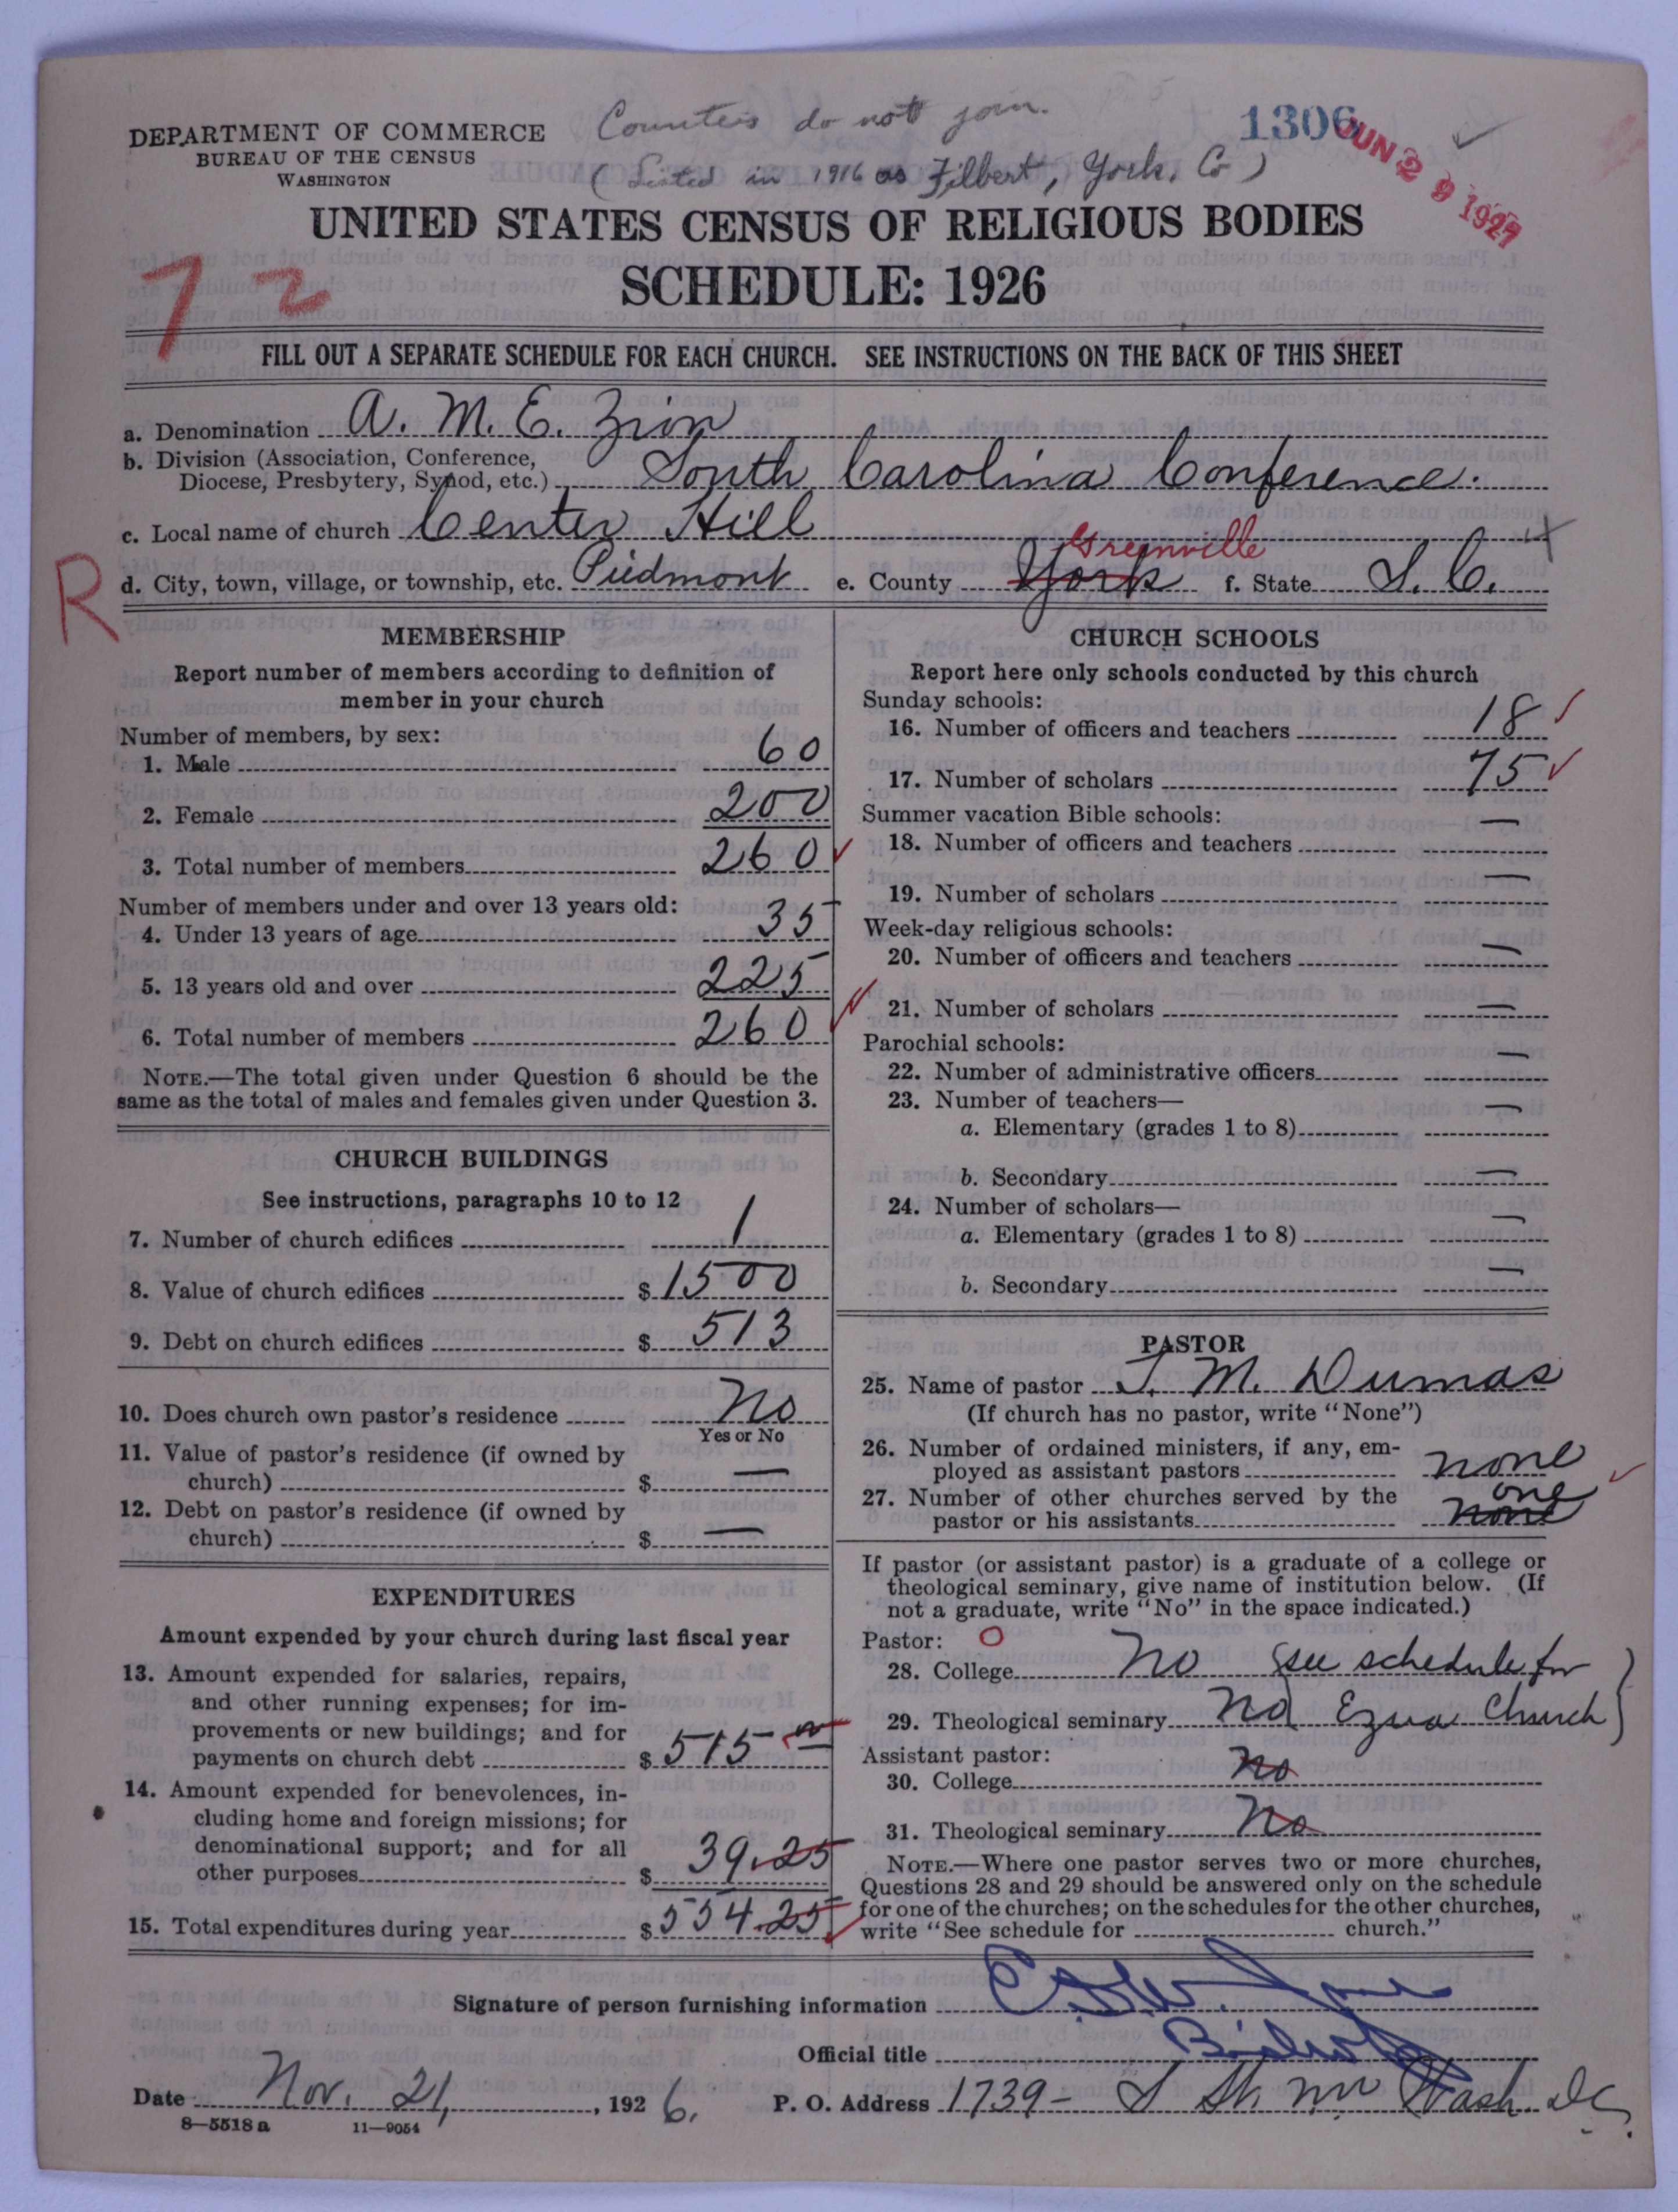 Counties do not join.
1306
DEPARTMENT OF COMMERCE
BUREAU OF THE CENSUS
WASHINGTON
(Listed in 1916 as Filbert, York, Co)
JUN 29 1927
UNITED STATES CENSUS OF RELIGIOUS BODIES
SCHEDULE: 1926
72
FILL OUT A SEPARATE SCHEDULE FOR EACH CHURCH. SEE INSTRUCTIONS ON THE BACK OF THIS SHEET
a. Denomination A. M. E. Zion
b. Division (Association, Conference,
Diocese, Presbytery, Synod, etc.) South Carolina Conference.
c. Local name of church Center Hill
Greenville
R
d. City, town, village, or township, etc. Piedmont e. County York f. State S. C.
MEMBERSHIP
Report number of members according to definition of
member in your church
Number of members, by sex:
1. Male 60
2. Female 200
3. Total number of members 260
Number of members under and over 13 years old:
4. Under 13 years of age 35
5. 13 years old and over 225
6. Total number of members 260
NOTE.—The total given under Question 6 should be the
same as the total of males and females given under Question 3.
CHURCH BUILDINGS
See instructions, paragraphs 10 to 12
7. Number of church edifices 1
8. Value of church edifices $1500
9. Debt on church edifices $513
10. Does church own pastor's residence No
Yes or No
11. Value of pastor's residence (if owned by
church) $ —
12. Debt on pastor's residence (if owned by
church) $ —
EXPENDITURES
Amount expended by your church during last fiscal year
13. Amount expended for salaries, repairs,
and other running expenses; for im-
provements or new buildings; and for
payments on church debt $515
14. Amount expended for benevolences, in-
cluding home and foreign missions; for
denominational support; and for all
other purposes $39.25
15. Total expenditures during year $554.25
CHURCH SCHOOLS
Report here only schools conducted by this church
Sunday schools:
16. Number of officers and teachers 18
17. Number of scholars 75
Summer vacation Bible schools:
18. Number of officers and teachers —
19. Number of scholars —
Week-day religious schools:
20. Number of officers and teachers —
21. Number of scholars —
Parochial schools:
22. Number of administrative officers —
23. Number of teachers—
a. Elementary (grades 1 to 8) —
b. Secondary —
24. Number of scholars—
a. Elementary (grades 1 to 8) —
b. Secondary —
PASTOR
25. Name of pastor J. M. Dumas
(If church has no pastor, write "None")
26. Number of ordained ministers, if any, em-
ployed as assistant pastors none
27. Number of other churches served by the one
pastor or his assistants none
If pastor (or assistant pastor) is a graduate of a college or
theological seminary, give name of institution below. (If
not a graduate, write "No" in the space indicated.)
Pastor: O
28. College No (see schedule for
29. Theological seminary No Church)
Assistant pastor:
30. College No
31. Theological seminary No
NOTE.—Where one pastor serves two or more churches,
Questions 28 and 29 should be answered only on the schedule
for one of the churches; on the schedules for the other churches,
write "See schedule for church."
Signature of person furnishing information
Official title Bishop
Date Nov. 21, 1926. P. O. Address 1739 - S St. NW Wash. D.C.
8—5518 a 11—9054